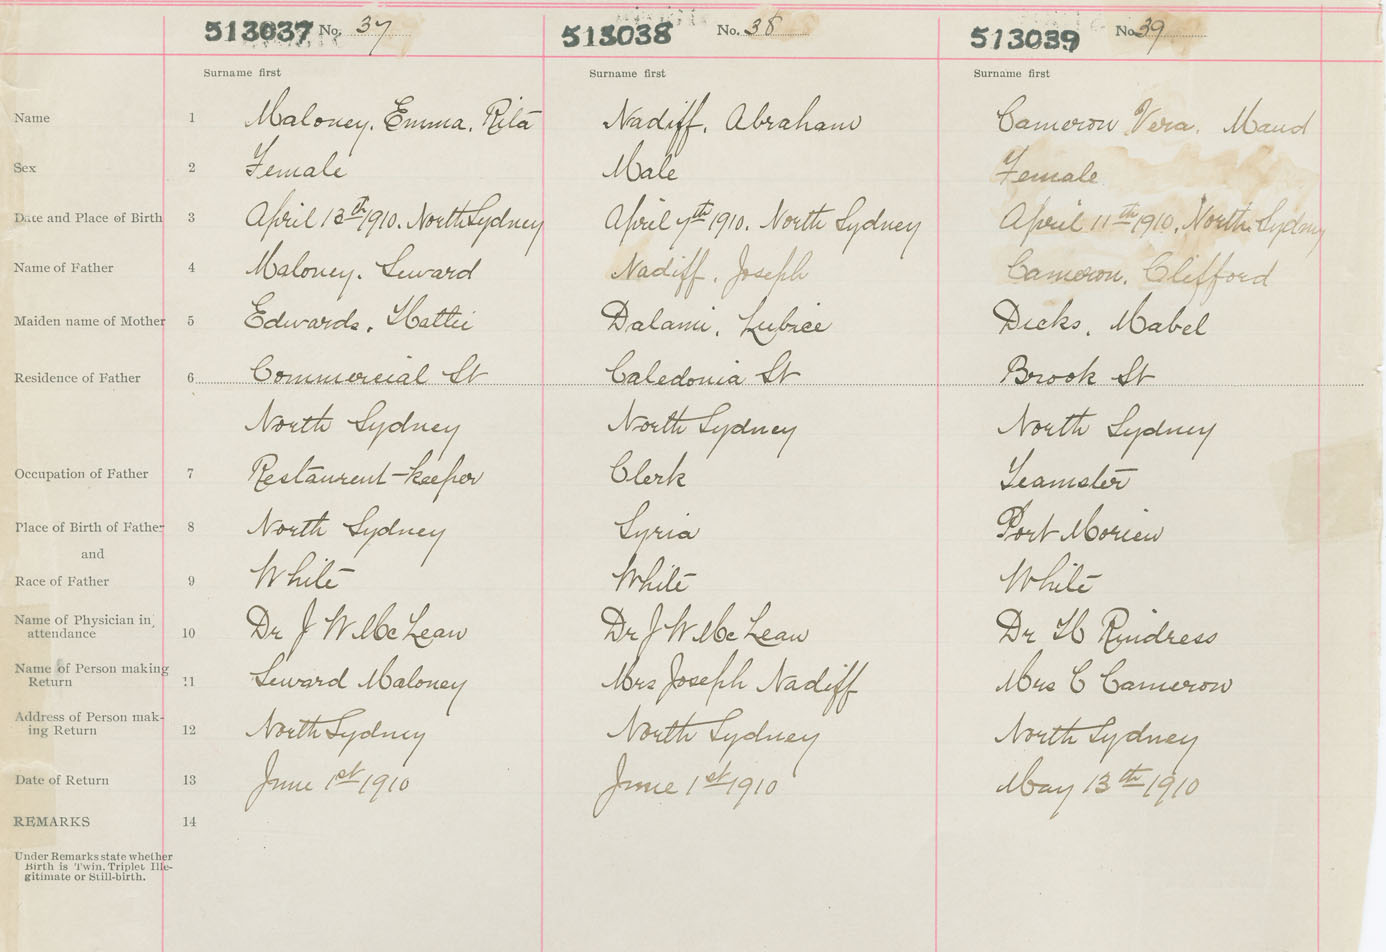 513037 No. 37 513038 No. 38 513039 No. 39
Surname first Surname first Surname first
Name 1 Maloney. Emma. Rita Nadiff. Abraham Cameron Vera. Maud
Sex 2 Female Male Female
Date and Place of Birth 3 April 13th 1910. North Sydney April 7th 1910. North Sydney April 11th 1910. North Sydney
Name of Father 4 Maloney. Seward Nadiff. Joseph Cameron. Clifford
Maiden name of Mother 5 Edwards. Hattie Dalami. Lubice Dicks. Mabel
Residence of Father 6 Commercial St Caledonia St Brook St
North Sydney North Sydney North Sydney
Occupation of Father 7 Restaurent-keeper Clerk Teamster
Place of Birth of Father 8 North Sydney Syria Port Morien
and
Race of Father 9 White White White
Name of Physician in
attendance 10 Dr J W McLean Dr J W McLean Dr H Rindress
Name of Person making
Return 11 Seward Maloney Mrs Joseph Nadiff Mrs C Cameron
Address of Person mak-
ing Return 12 North Sydney North Sydney North Sydney
Date of Return 13 June 1st 1910 June 1st 1910 May 13th 1910
REMARKS 14
Under Remarks state whether
Birth is Twin. Triplet Ille-
gitimate or Still-birth.